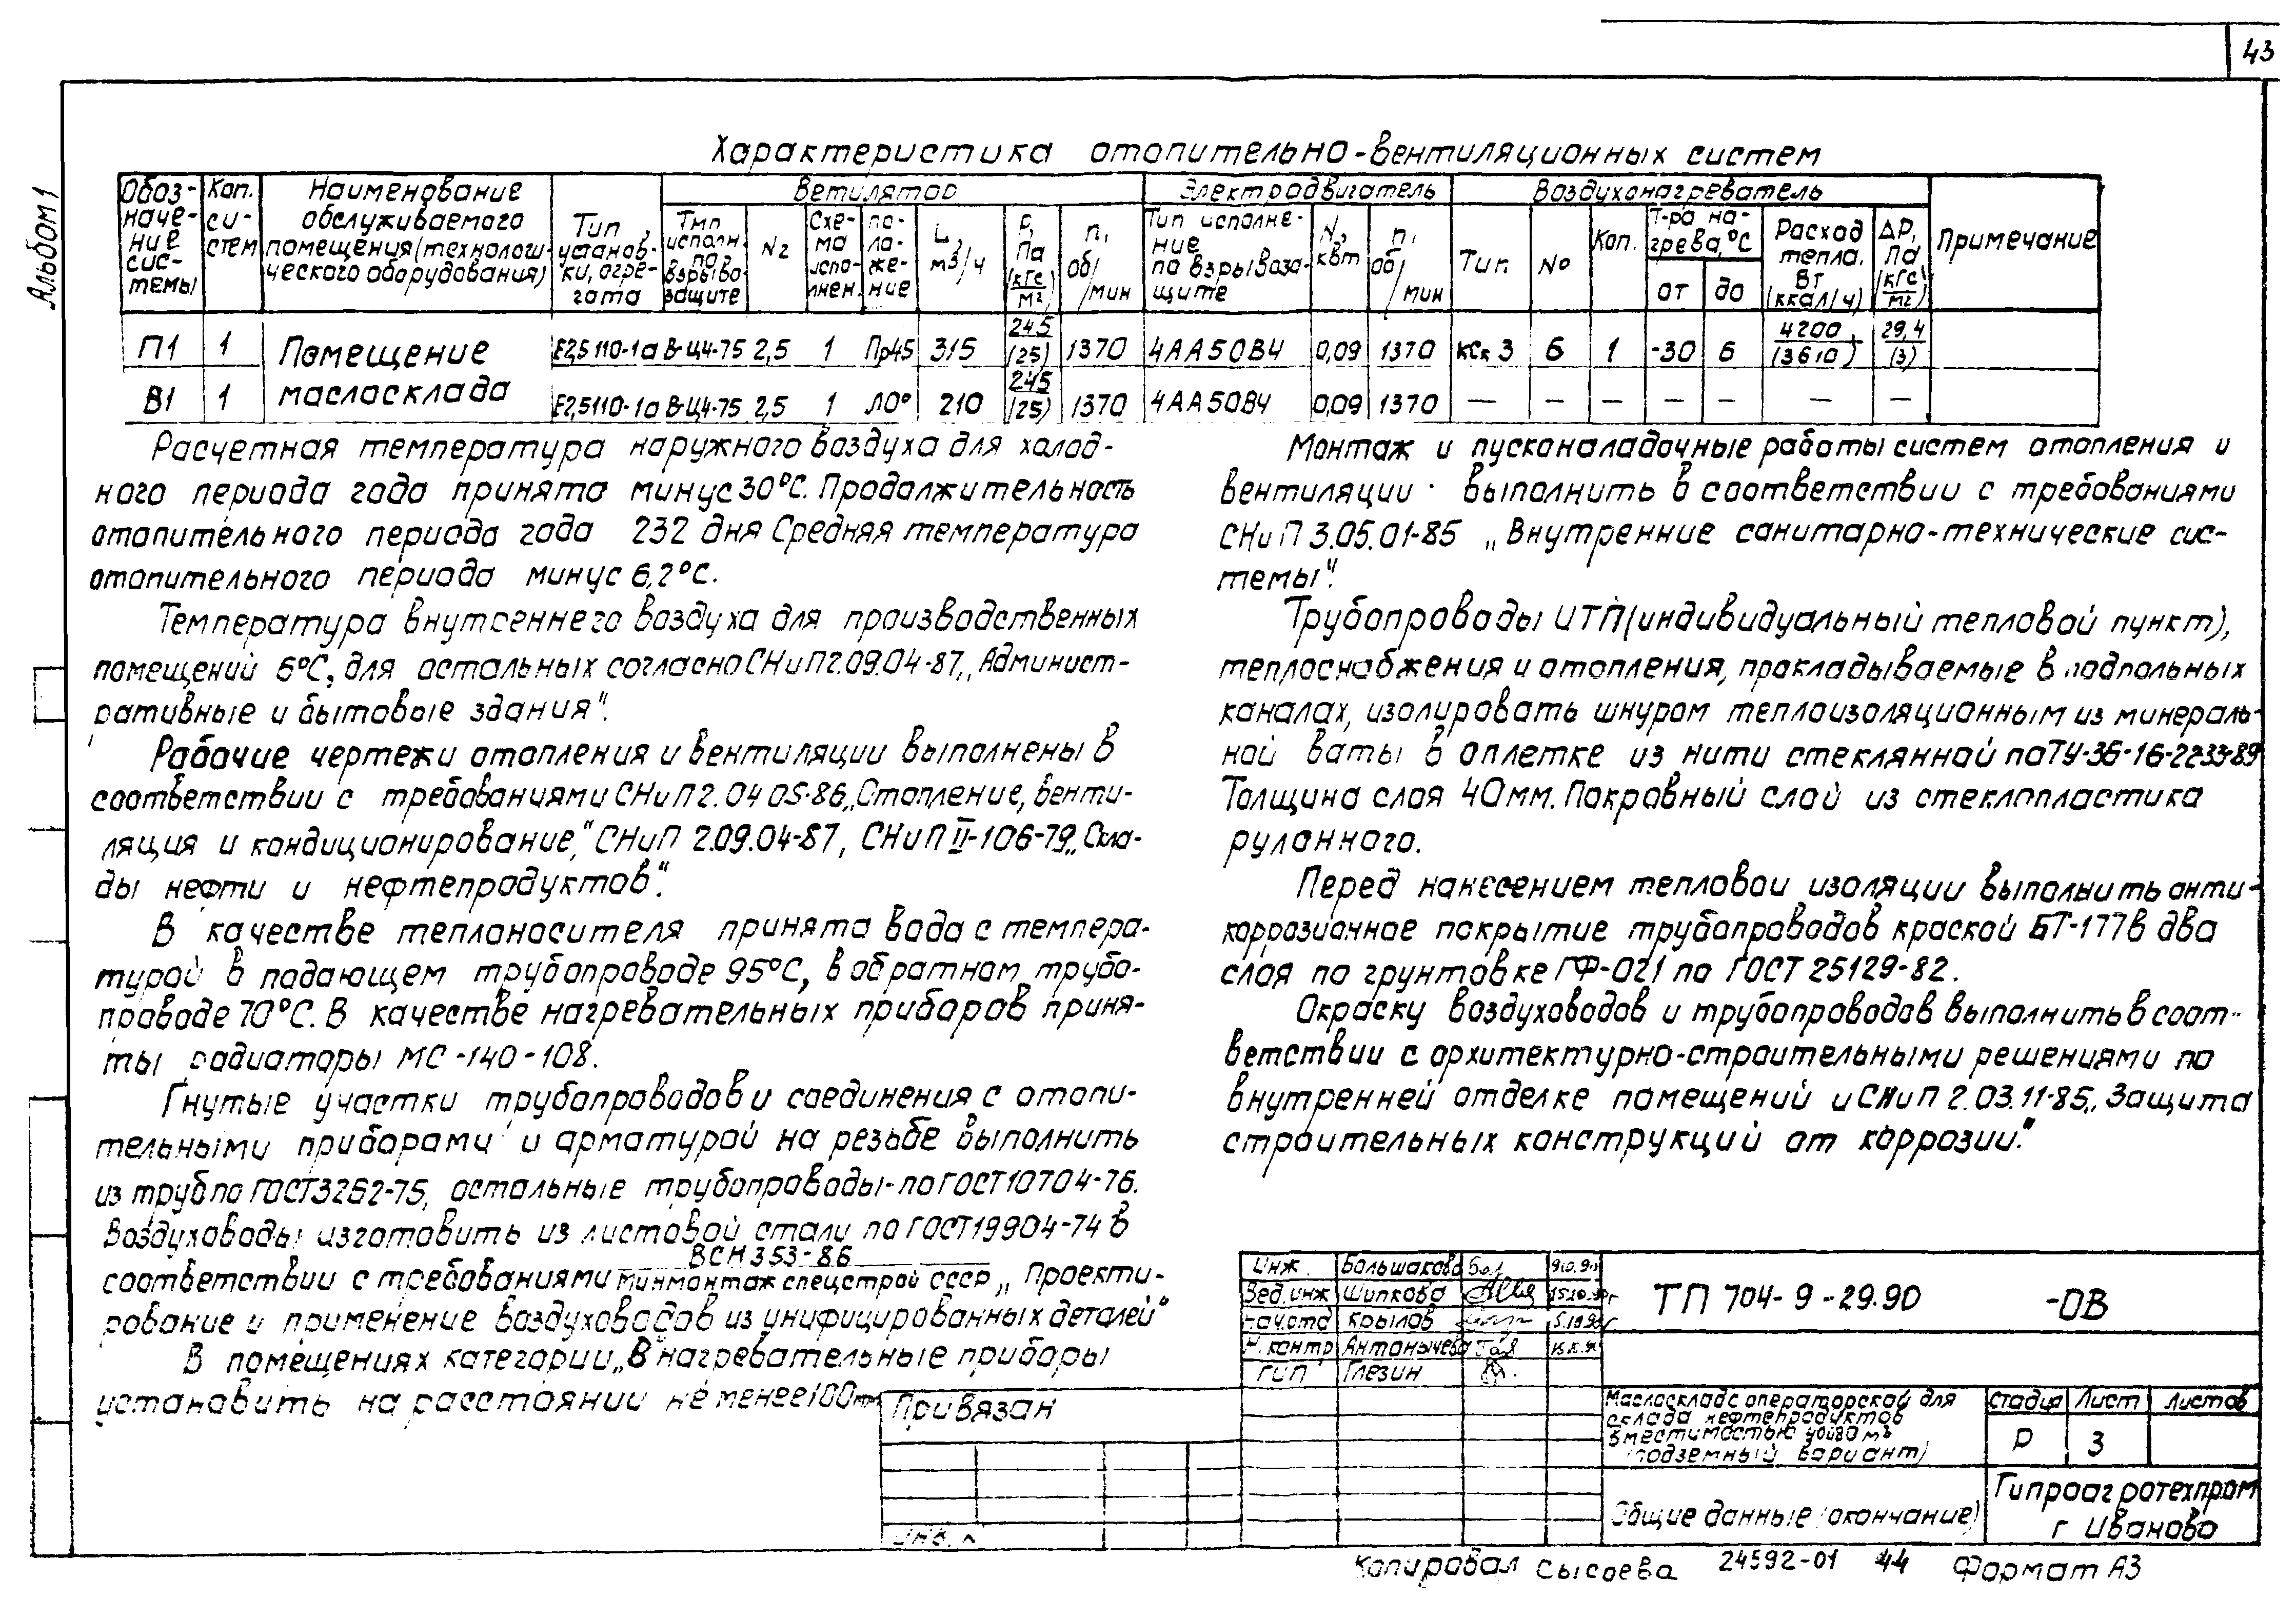 43
Альбом 1
Характеристика отопительно-вентиляционных систем
Обоз-
наче-
ние
сис-
темы
Кол.
си-
стем
Наименование
обслуживаемого
помещения (технологи-
ческого оборудования)
Тип
установ-
ки, агре-
гата
Вентилятор
Тип
исполн.
по
взрыво-
защите
№
Схе-
ма
испо-
лнен.
По-
ло-
же-
ние
L,
м3/ч
P,
Па
(кгс/м2)
n,
об/мин
Электродвигатель
Тип исполне-
ние
по взрывоза-
щите
N,
квт
n,
об/мин
Воздухонагреватель
Тип.
№
Кол.
Т-ра на-
грева, °С
от
до
Расход
тепла.
Вт
(ккал/ч)
ΔP,
Па
(кгс/м2)
Примечание
П1 1 Помещение Е2,5110-1а В-Ц4-75 2,5 1 Пр45 315 245 (25) 1370 4АА50В4 0,09 1370 КСк 3 6 1 -30 6 4200 (3610) 29,4 (3)
В1 1 маслосклада Е2,5110-1а В-Ц4-75 2,5 1 Л0° 210 245 (25) 1370 4АА50В4 0,09 1370 — — — — — — —
Расчетная температура наружного воздуха для холод-
ного периода года принята минус 30°С. Продолжительность
отопительного периода года 232 дня Средняя температура
отопительного периода минус 6,2°С.
Температура внутреннего воздуха для производственных
помещений 6°С, для остальных согласно СНиП 2.09.04-87 „Админист-
ративные и бытовые здания".
Рабочие чертежи отопления и вентиляции выполнены в
соответствии с требованиями СНиП 2.04 05-86 „Отопление, венти-
ляция и кондиционирование," СНиП 2.09.04-87, СНиП II-106-79 „Скла-
ды нефти и нефтепродуктов".
В качестве теплоносителя принята вода с темпера-
турой в подающем трубопроводе 95°С, в обратном трубо-
проводе 70°С. В качестве нагревательных приборов приня-
ты радиаторы МС-140-108.
Гнутые участки трубопроводов и соединения с отопи-
тельными приборами и арматурой на резьбе выполнить
из труб по ГОСТ 3262-75, остальные трубопроводы-по ГОСТ 10704-76.
Воздуховоды изготовить из листовой стали по ГОСТ 19904-74 в
ВСН 353-86
соответствии с требованиями минмонтажспецстрой СССР „Проекти-
рование и применение воздуховодов из унифицированных деталей"
В помещениях категории „В" нагревательные приборы
установить на расстоянии не менее 100мм
Монтаж и пусконаладочные работы систем отопления и
вентиляции выполнить в соответствии с требованиями
СНиП 3.05.01-85 „Внутренние санитарно-технические сис-
темы".
Трубопроводы ИТП (индивидуальный тепловой пункт),
теплоснабжения и отопления, прокладываемые в подпольных
каналах, изолировать шнуром теплоизоляционным из минераль-
ной ваты в оплетке из нити стеклянной по ТУ-36-16-22-33-89
Толщина слоя 40мм. Покровный слой из стеклопластика
рулонного.
Перед нанесением тепловой изоляции выполнить анти-
коррозионное покрытие трубопроводов краской БТ-177 в два
слоя по грунтовке ГФ-021 по ГОСТ 25129-82.
Окраску воздуховодов и трубопроводов выполнить в соот-
ветствии с архитектурно-строительными решениями по
внутренней отделке помещений и СНиП 2.03.11-85 „Защита
строительных конструкций от коррозии."
Инж. Большакова
Вед.инж Шипкова
Нач.отд Крылов
Н.контр Антонычева
ГИП Глезин
ТП 704-9-29.90 -ОВ
Маслосклад с операторской для
склада нефтепродуктов
вместимостью
(подземный вариант)
Стадия Лист Листов
Р 3
Общие данные (окончание)
Гипроагротехпром
г Иваново
Привязан
Инв. №
Копировал Сысоева 24592-01 44 Формат А3